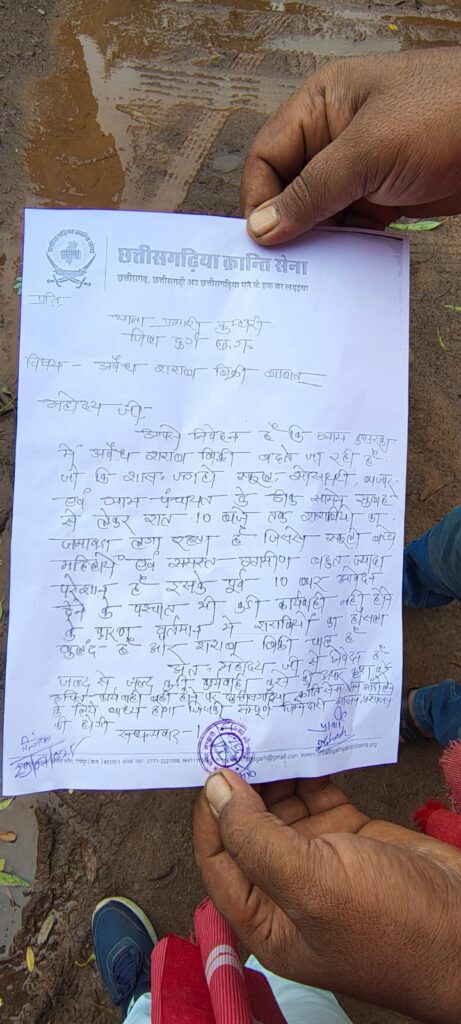 छत्तीसगढ़िया क्रान्ति सेना
छत्तीसगढ़, छत्तीसगढ़ी अउ छत्तीसगढ़िया मन के हक बर लड़इया
प्रति
थाना प्रभारी कुम्हारी
जिला दुर्ग छ.ग.
विषय - अवैध शराब बिक्री बाबत
महोदय जी -
आपसे निवेदन है कि ग्राम
में अवैध शराब बिक्री बढ़ते जा रही है
जो कि शास. जगहो स्कूल, बजार
एवं ग्राम पंचायत के ठीक सामने सुबह
से लेकर रात 10 बजे तक शराबियो का
जमावड़ा लगा रहता है जिससे स्कूली बच्चे
महिलाये एवं समस्त ग्रामीण बहुत ज्यादा
परेशान है इसके पूर्व 10 बार आवेदन
देने के पश्चात भी कोई कार्यवाही नही होने
के कारण वर्तमान में शराबियो का हौसला
बुलंद है और शराब बिक्री चालू है
अतः महोदय जी से निवेदन है
जल्द से जल्द कड़ी कार्यवाही करने की कृपा करे
उचित कार्यवाही नही होने पर छत्तीसगढ़िया क्रांति सेना
के लिये बाध्य होगा जिसकी सम्पूर्ण जिम्मेदारी शासन प्रशासन
की होगी
धन्यवाद -
दिनांक
प्रार्थी